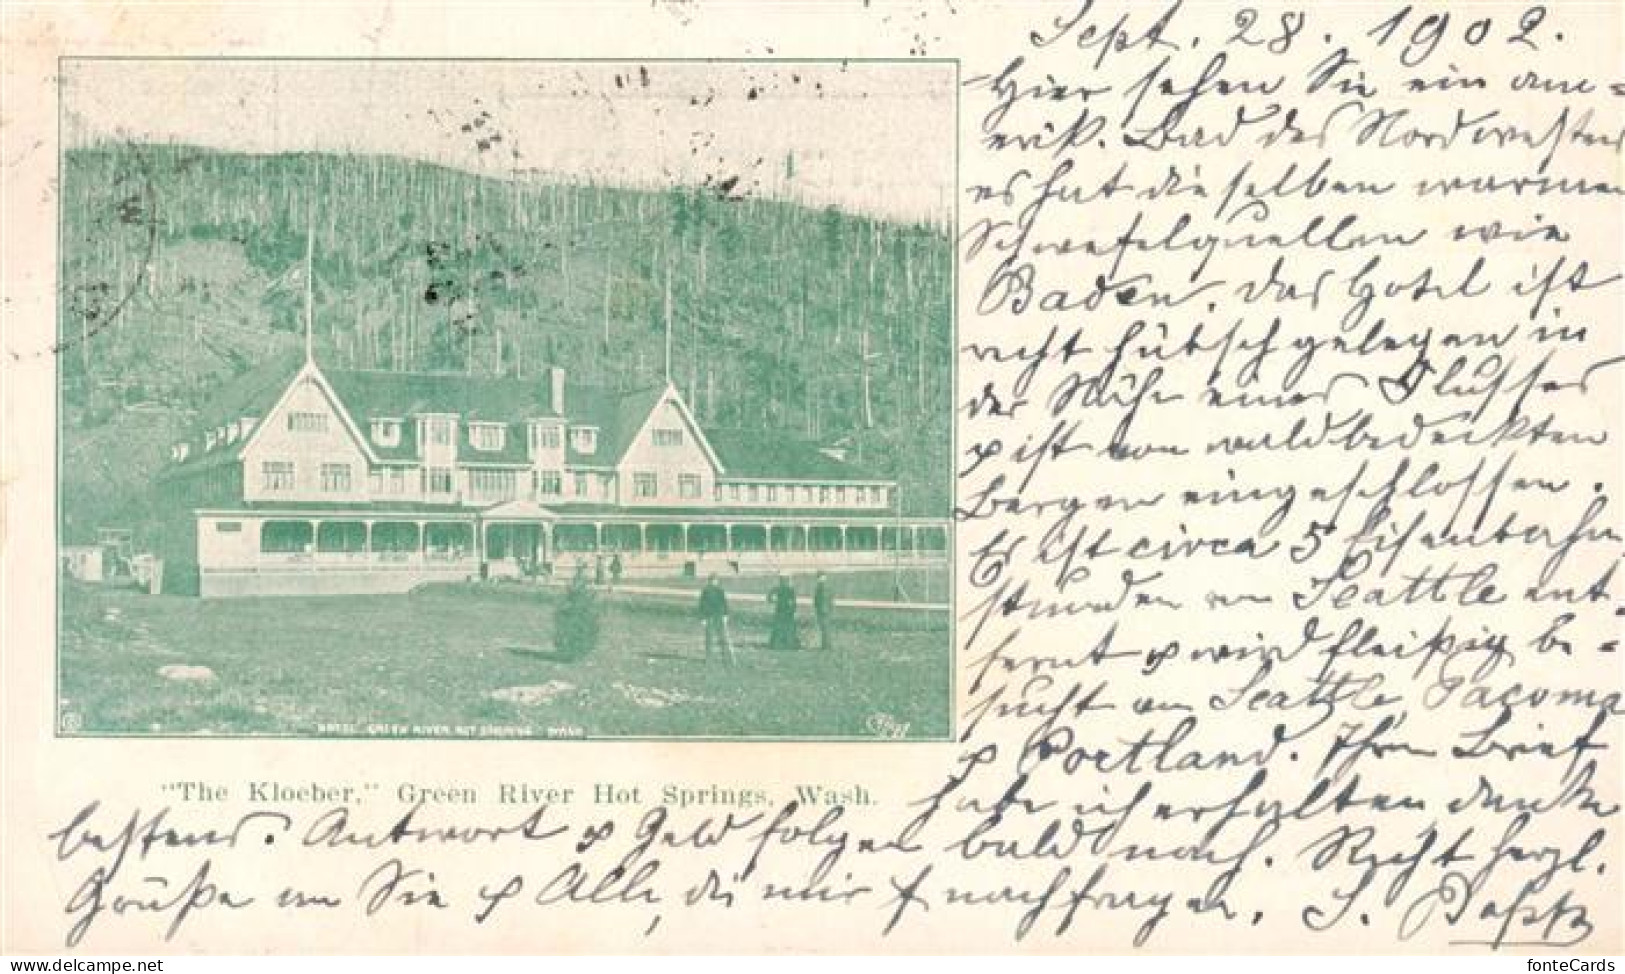 Sept. 28. 1902.
Hier sehen Sie ein ame=
rik. Bad des Nordwestens
es hat dieselben warmen
Schwefelquellen wie
Baden. Das Hotel ist
recht hübsch gelegen in
der Nähe eines Flusses
& ist von waldbedeckten
Bergen eingeschlossen.
Es ist circa 5 Eisenbahn
stunden von Seattle ent-
fernt & wird fleißig be=
sucht von Seattle, Tacoma
& Portland. Ihren Brief
habe ich erhalten danke
bestens. Antwort & Geld folgen bald nach. Recht herzl.
Grüße an Sie & Alle, die mir nachfragen. S.
HOTEL GREEN RIVER HOT SPRINGS WASH
"The Kloeber," Green River Hot Springs, Wash.
fonteCards
Copyright © delcampe.net